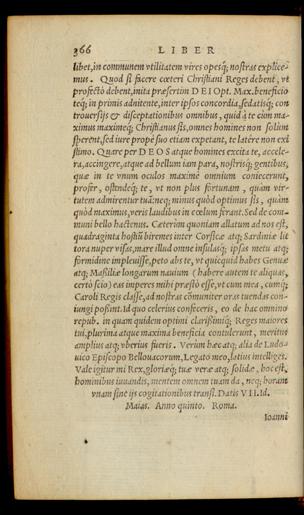 366 LIBER
libet, in communem vtilitatem vires opesq; nostras explice
mus. Quod si facere cœteri Christiani Reges debent, vt
profectò debent, inita præsertim DEI Opt. Max. beneficio
teq; in primis adnitente, inter ipsos concordia, sedatisq; con
trouersijs & disceptationibus omnibus, quid à te eum ma
ximum maximeq; Christianus sis, omnes homines non solùm
sperent, sed iure propè suo etiam expetant, te latère non exi
stimo. Quare per DEOS atque homines excita te, accele-
ra, accingere, atque ad bellum iam para, nostrisq; gentibus,
quæ in te vnum oculos maximè omnium coniecerunt,
profer, ostendeq; te, vt non plus fortunam, quàm vir-
tutem admirentur tuã: neq; minus quòd optimus sis, quàm
quòd maximus, veris laudibus in cœlum ferant. Sed de com-
muni bello hactenus. Cæterùm quoniam allatum ad nos est,
quadraginta hostiũ biremes inter Corsicæ atq; Sardiniæ lit
tora nuper visas, mare illud omne insulasq; ipsas metu atq;
formidine impleuisse, peto abs te, vt quicquid habes Genuæ
atq; Massiliæ longarum nauium (habere autem te aliquas,
certò scio) eas imperes mihi præstò esse, vt cum mea, cumq;
Caroli Regis classe, ad nostras cõmuniter oras tuendas con-
iungi possint. Id quo celerius confeceris, eo de hac omnino
repub. in quam quidem optimi clarissimiq; Reges maiores
tui, plurima atque maxima beneficia contulerunt, meritus
amplius atq; vberius fueris. Verùm hæc atq; alia de Ludo-
uico Episcopo Bellouacorum, Legato meo, latius intelliges.
Vale igitur mi Rex, gloriæq; tuæ veræ atq; solidæ, hoc est,
hominibus iuuandis, mentem omnem tuam da, neq; horam
vnam sine ijs cogitationibus transi. Datis VII. Id.
Maias. Anno quinto. Roma.
Ioanni